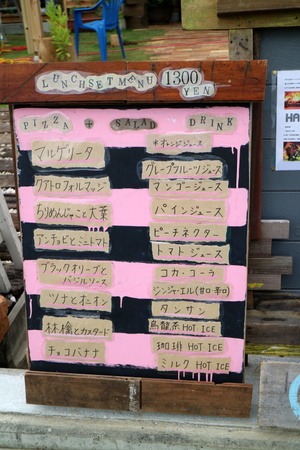 LUNCH SET MENU 1300 YEN
PIZZA + SALAD DRINK
マルゲリータ
クアトロフォルマッジ
ちりめんじゃこと大葉
アンチョビとミニトマト
ブラックオリーブと
バジルソース
ツナとオニオン
林檎とカスタード
チョコバナナ
*オレンジジュース
グレープフルーツジュース
マンゴージュース
パインジュース
ピーチネクター
トマトジュース
コカ・コーラ
ジンジャーエル(甘口・辛口)
タンサン
烏龍茶 HOT ICE
珈琲 HOT ICE
ミルク HOT ICE
HA